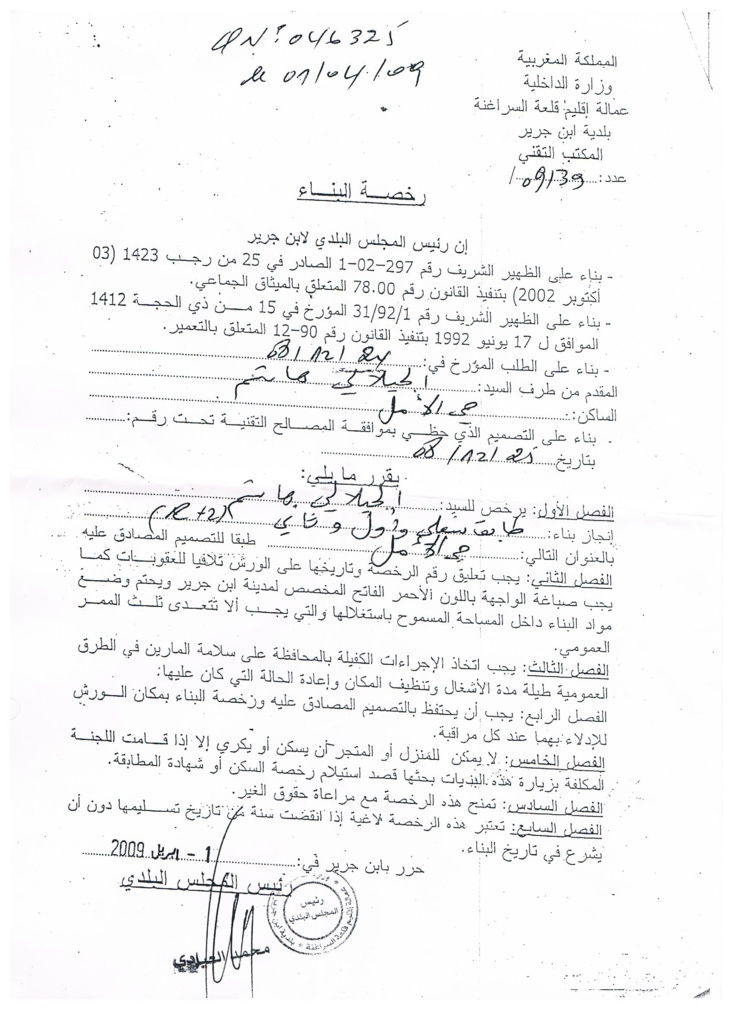 QN°: 046325
le 01/04/09
المملكة المغربية
وزارة الداخلية
عمالة إقليم قلعة السراغنة
بلدية ابن جرير
المكتب التقني
عدد: 09/39/
رخصة البناء
إن رئيس المجلس البلدي لابن جرير
- بناء على الظهير الشريف رقم 297-02-1 الصادر في 25 من رجب 1423 (03
أكتوبر 2002) بتنفيذ القانون رقم 78.00 المتعلق بالميثاق الجماعي.
- بناء على الظهير الشريف رقم 31/92/1 المؤرخ في 15 من ذي الحجة 1412
الموافق ل 17 يونيو 1992 بتنفيذ القانون رقم 90-12 المتعلق بالتعمير.
- بناء على الطلب المؤرخ في: 08/12/24
المقدم من طرف السيد: الجيلالي هاشم
الساكن: حي الأمل
. بناء على التصميم الذي حظي بموافقة المصالح التقنية تحت رقم:
بتاريخ 08/12/25
يقرر مايلي:
الفصل الأول: يرخص للسيد: الجيلالي هاشم
إنجاز بناء: طابق سفلي وأول وثاني (R+2)
بالعنوان التالي: حي الأمل طبقا للتصميم المصادق عليه
الفصل الثاني: يجب تعليق رقم الرخصة وتاريخها على الورش تلافيا للعقوبات كما
يجب صباغة الواجهة باللون الأحمر الفاتح المخصص لمدينة ابن جرير ويحتم وضع
مواد البناء داخل المساحة المسموح باستغلالها والتي يجب ألا تتعدى ثلث الممر
العمومي.
الفصل الثالث: يجب اتخاذ الإجراءات الكفيلة بالمحافظة على سلامة المارين في الطرق
العمومية طيلة مدة الأشغال وتنظيف المكان وإعادة الحالة التي كان عليها.
الفصل الرابع: يجب أن يحتفظ بالتصميم المصادق عليه ورخصة البناء بمكان الورش
للإدلاء بهما عند كل مراقبة.
الفصل الخامس: لا يمكن للمنزل أو المتجر أن يسكن أو يكري إلا إذا قامت اللجنة
المكلفة بزيارة هذه البنايات بحثها قصد استيلام رخصة السكن أو شهادة المطابقة.
الفصل السادس: تمنح هذه الرخصة مع مراعاة حقوق الغير.
الفصل السابع: تعتبر هذه الرخصة لاغية إذا انقضت سنة من تاريخ تسليمها دون أن
يشرع في تاريخ البناء.
حرر بابن جرير في: 1 - ابريل 2009
رئيس المجلس البلدي
رئيس
المجلس البلدي
محمد العيادي